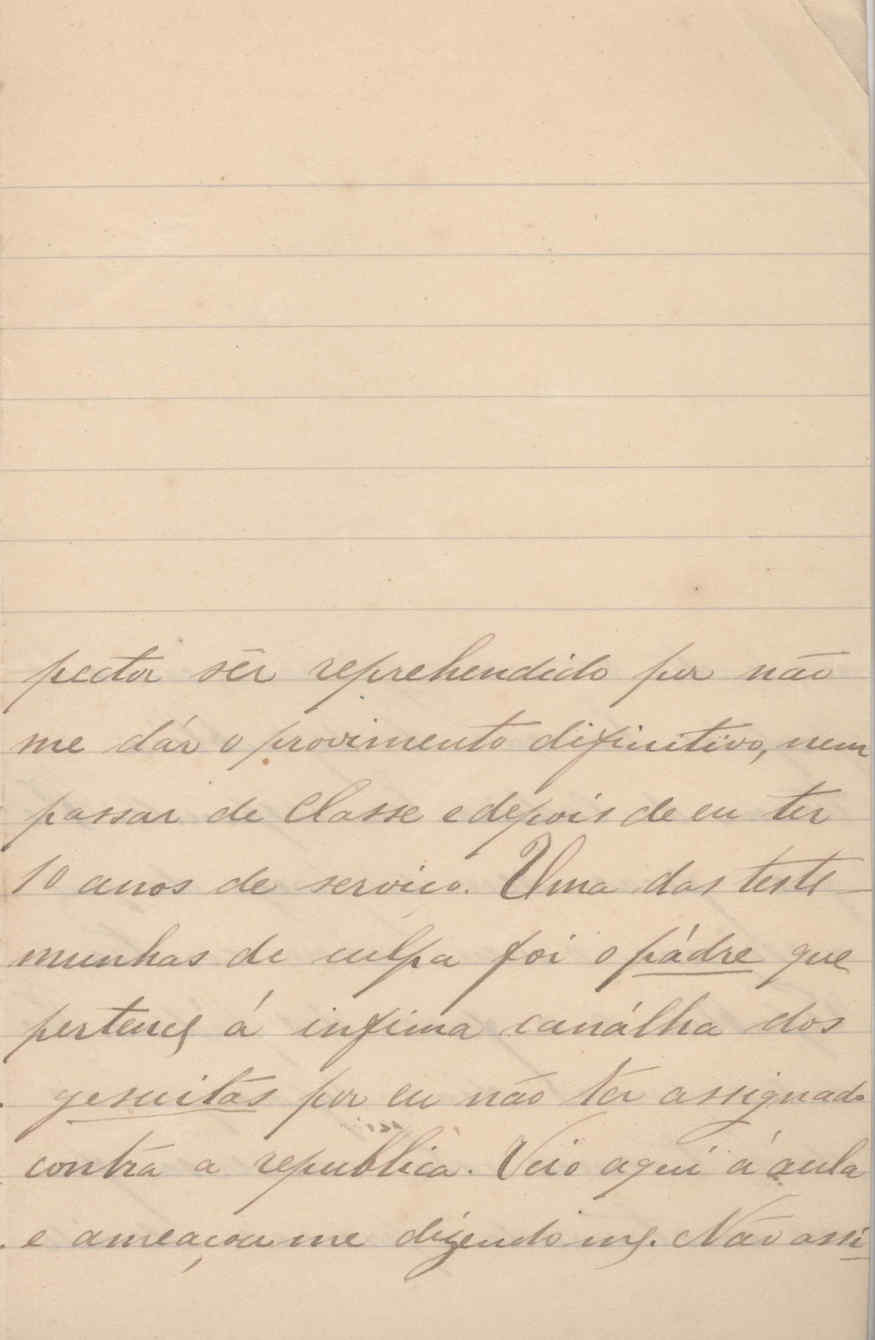 pector sêr reprehendido por não
me dár o provimento difinitivo, nem
passar de classe e depois de eu ter
10 anos de serviço. Uma das teste-
munhas de culpa foi o pádre que
pertence á infima canálha dos
gesuitas por eu não ter assignado
contra a republica. Veio aqui á aula
e ameaçou me dizendo me. Não assi